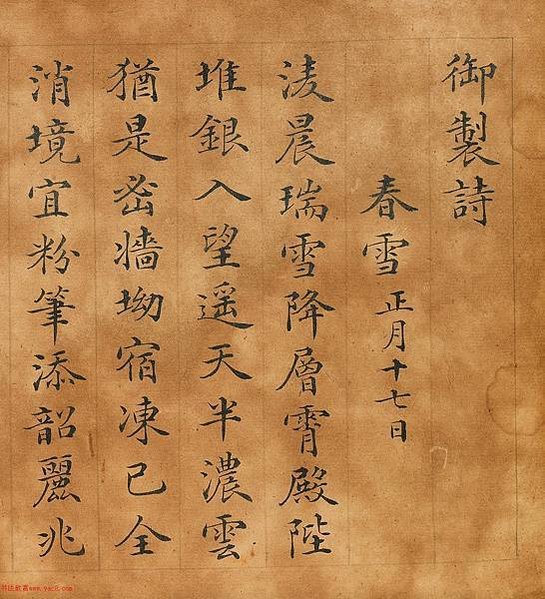 御製詩
春雪正月十七日
淩晨瑞雪降層霄殿陛
堆銀入望遥天半濃雲
猶是密墻坳宿凍已全
消境宜粉筆添韶麗兆
书法欣赏www.yac8.com